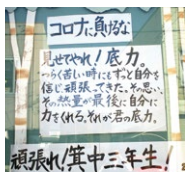 コロナに負けるな
見せてやれ！底力。
つらく苦しい時にもずと自分を
信じ頑張ってきた。その思い、
その熱量が最後に自分に
力をくれる。それが君の底力。
頑張れ！箕中三年生！